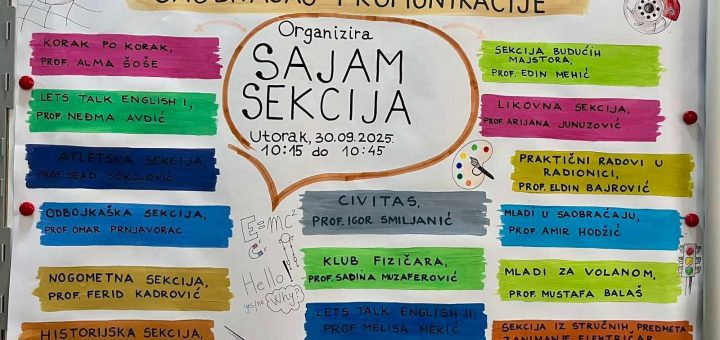 SAOBRAĆAJ I KOMUNIKACIJE
Organizira
SAJAM
SEKCIJA
Utorak, 30.09.2025.
10:15 do 10:45
KORAK PO KORAK,
PROF. ALMA ŠOŠE
LETS TALK ENGLISH I,
PROF. NEĐMA AVDIĆ
ATLETSKA SEKCIJA,
PROF. SEAD SOKOLOVIĆ
ODBOJKAŠKA SEKCIJA,
PROF. OMAR PRNJAVORAC
NOGOMETNA SEKCIJA,
PROF. FERID KADROVIĆ
HISTORIJSKA SEKCIJA,
E=mc²
Hello!
yes/no Why?
CIVITAS,
PROF. IGOR SMILJANIĆ
KLUB FIZIČARA,
PROF. SADINA MUZAFEROVIĆ
LETS TALK ENGLISH II,
PROF MELISA MEKIĆ
SEKCIJA BUDUĆIH
MAJSTORA,
PROF. EDIN MEHIĆ
LIKOVNA SEKCIJA,
PROF. ARIJANA JUNUZOVIĆ
PRAKTIČNI RADOVI U
RADIONICI,
PROF. ELDIN BAJROVIĆ
MLADI U SAOBRAĆAJU,
PROF. AMIR HODŽIĆ
MLADI ZA VOLANOM,
PROF. MUSTAFA BALAŠ
SEKCIJA IZ STRUČNIH PREDMETA
ZANIMANJE ELEKTRIČAR